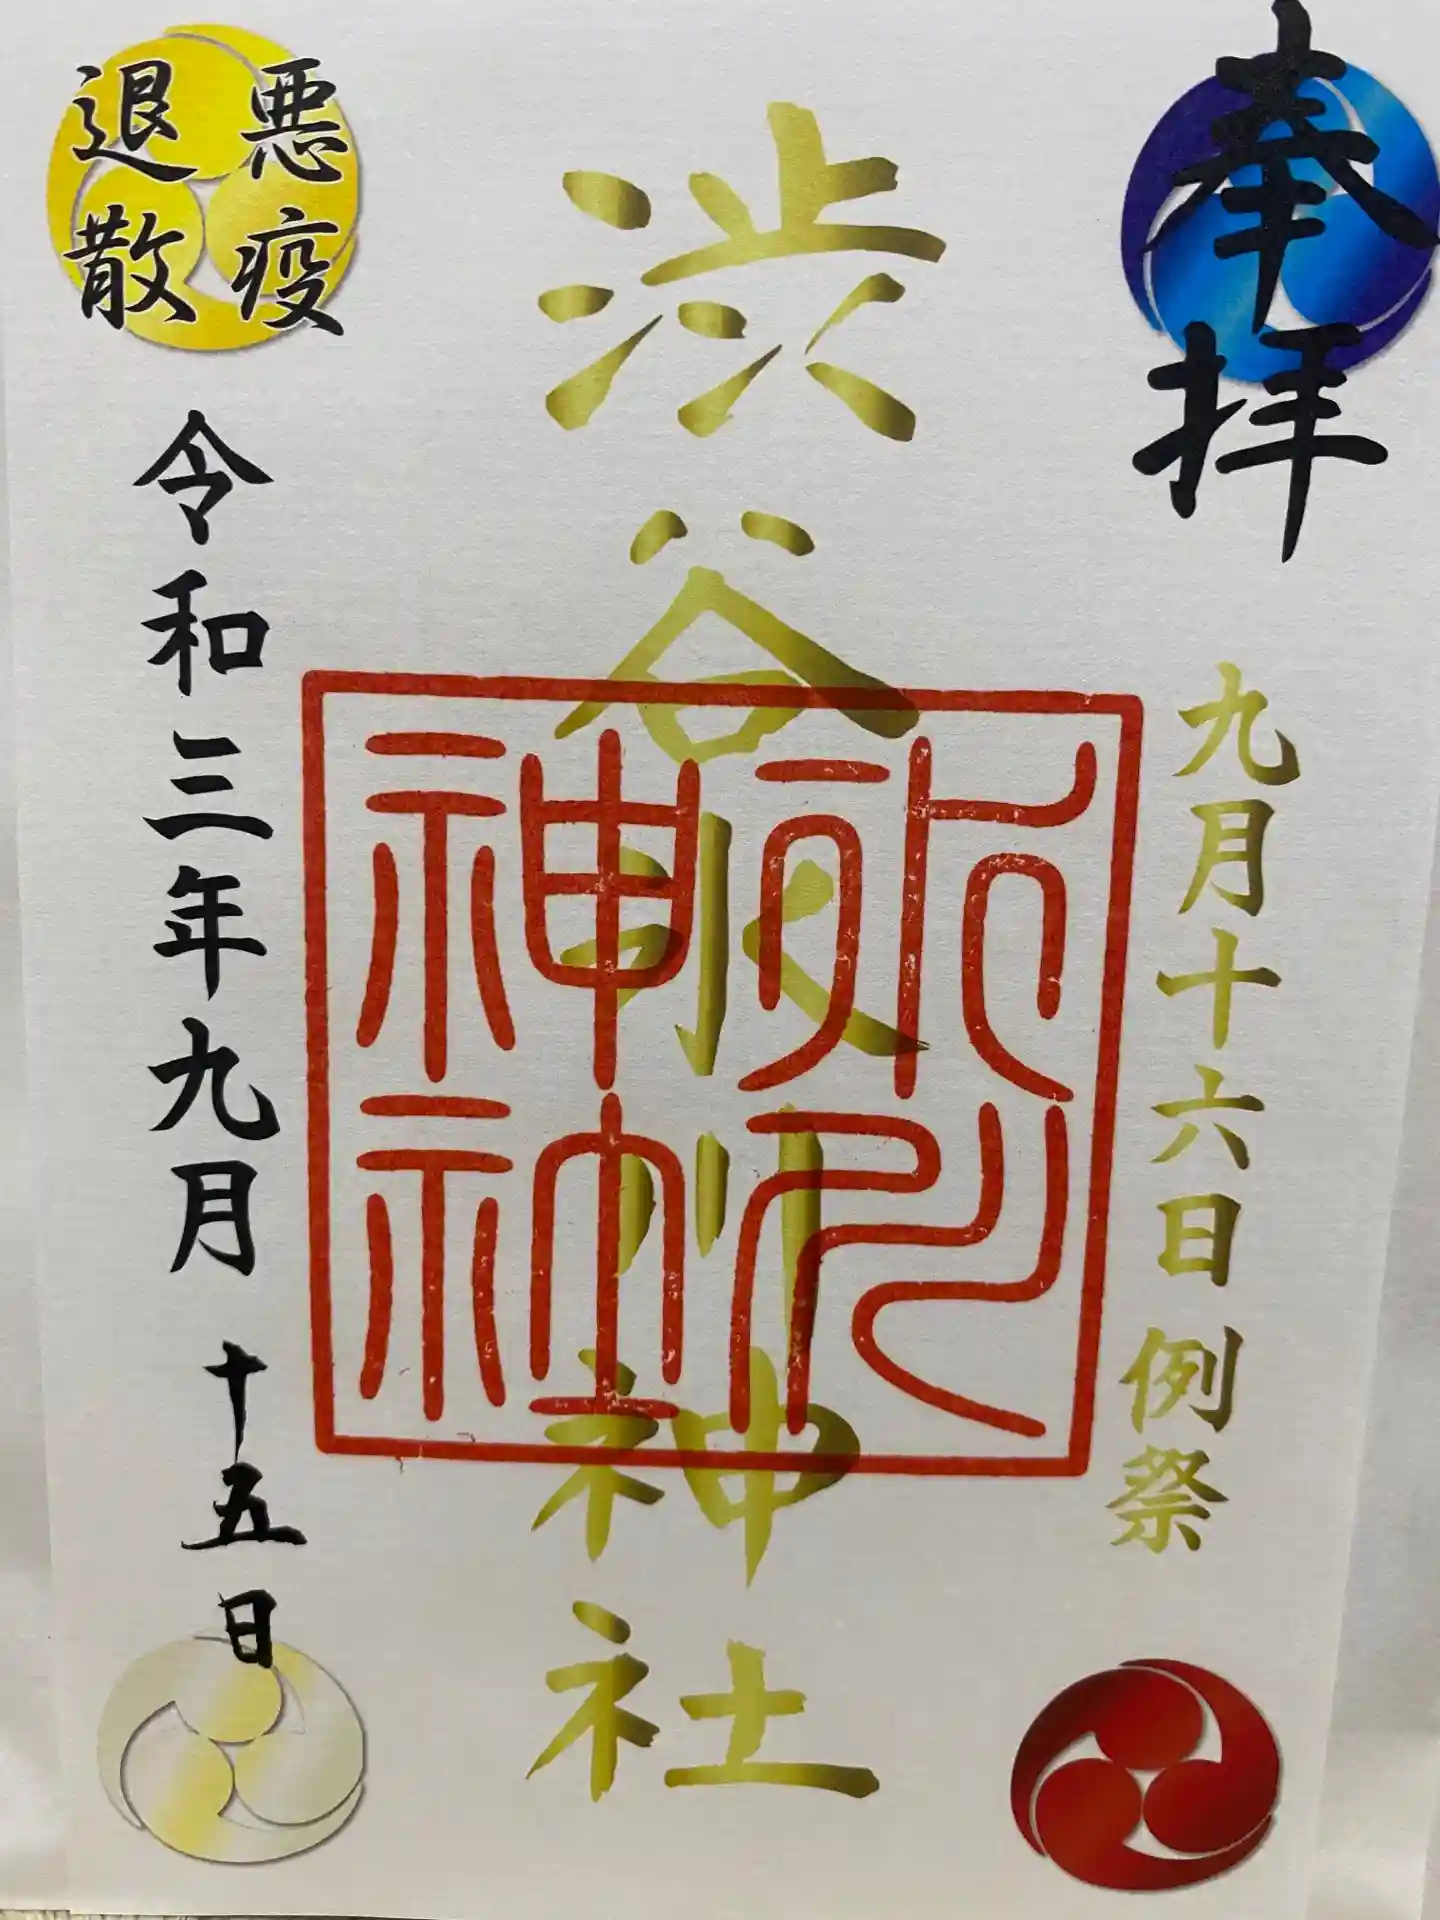 奉拝
九月十六日 例祭
渋谷氷川神社
氷川神社
悪疫
退散
令和三年九月 十五日